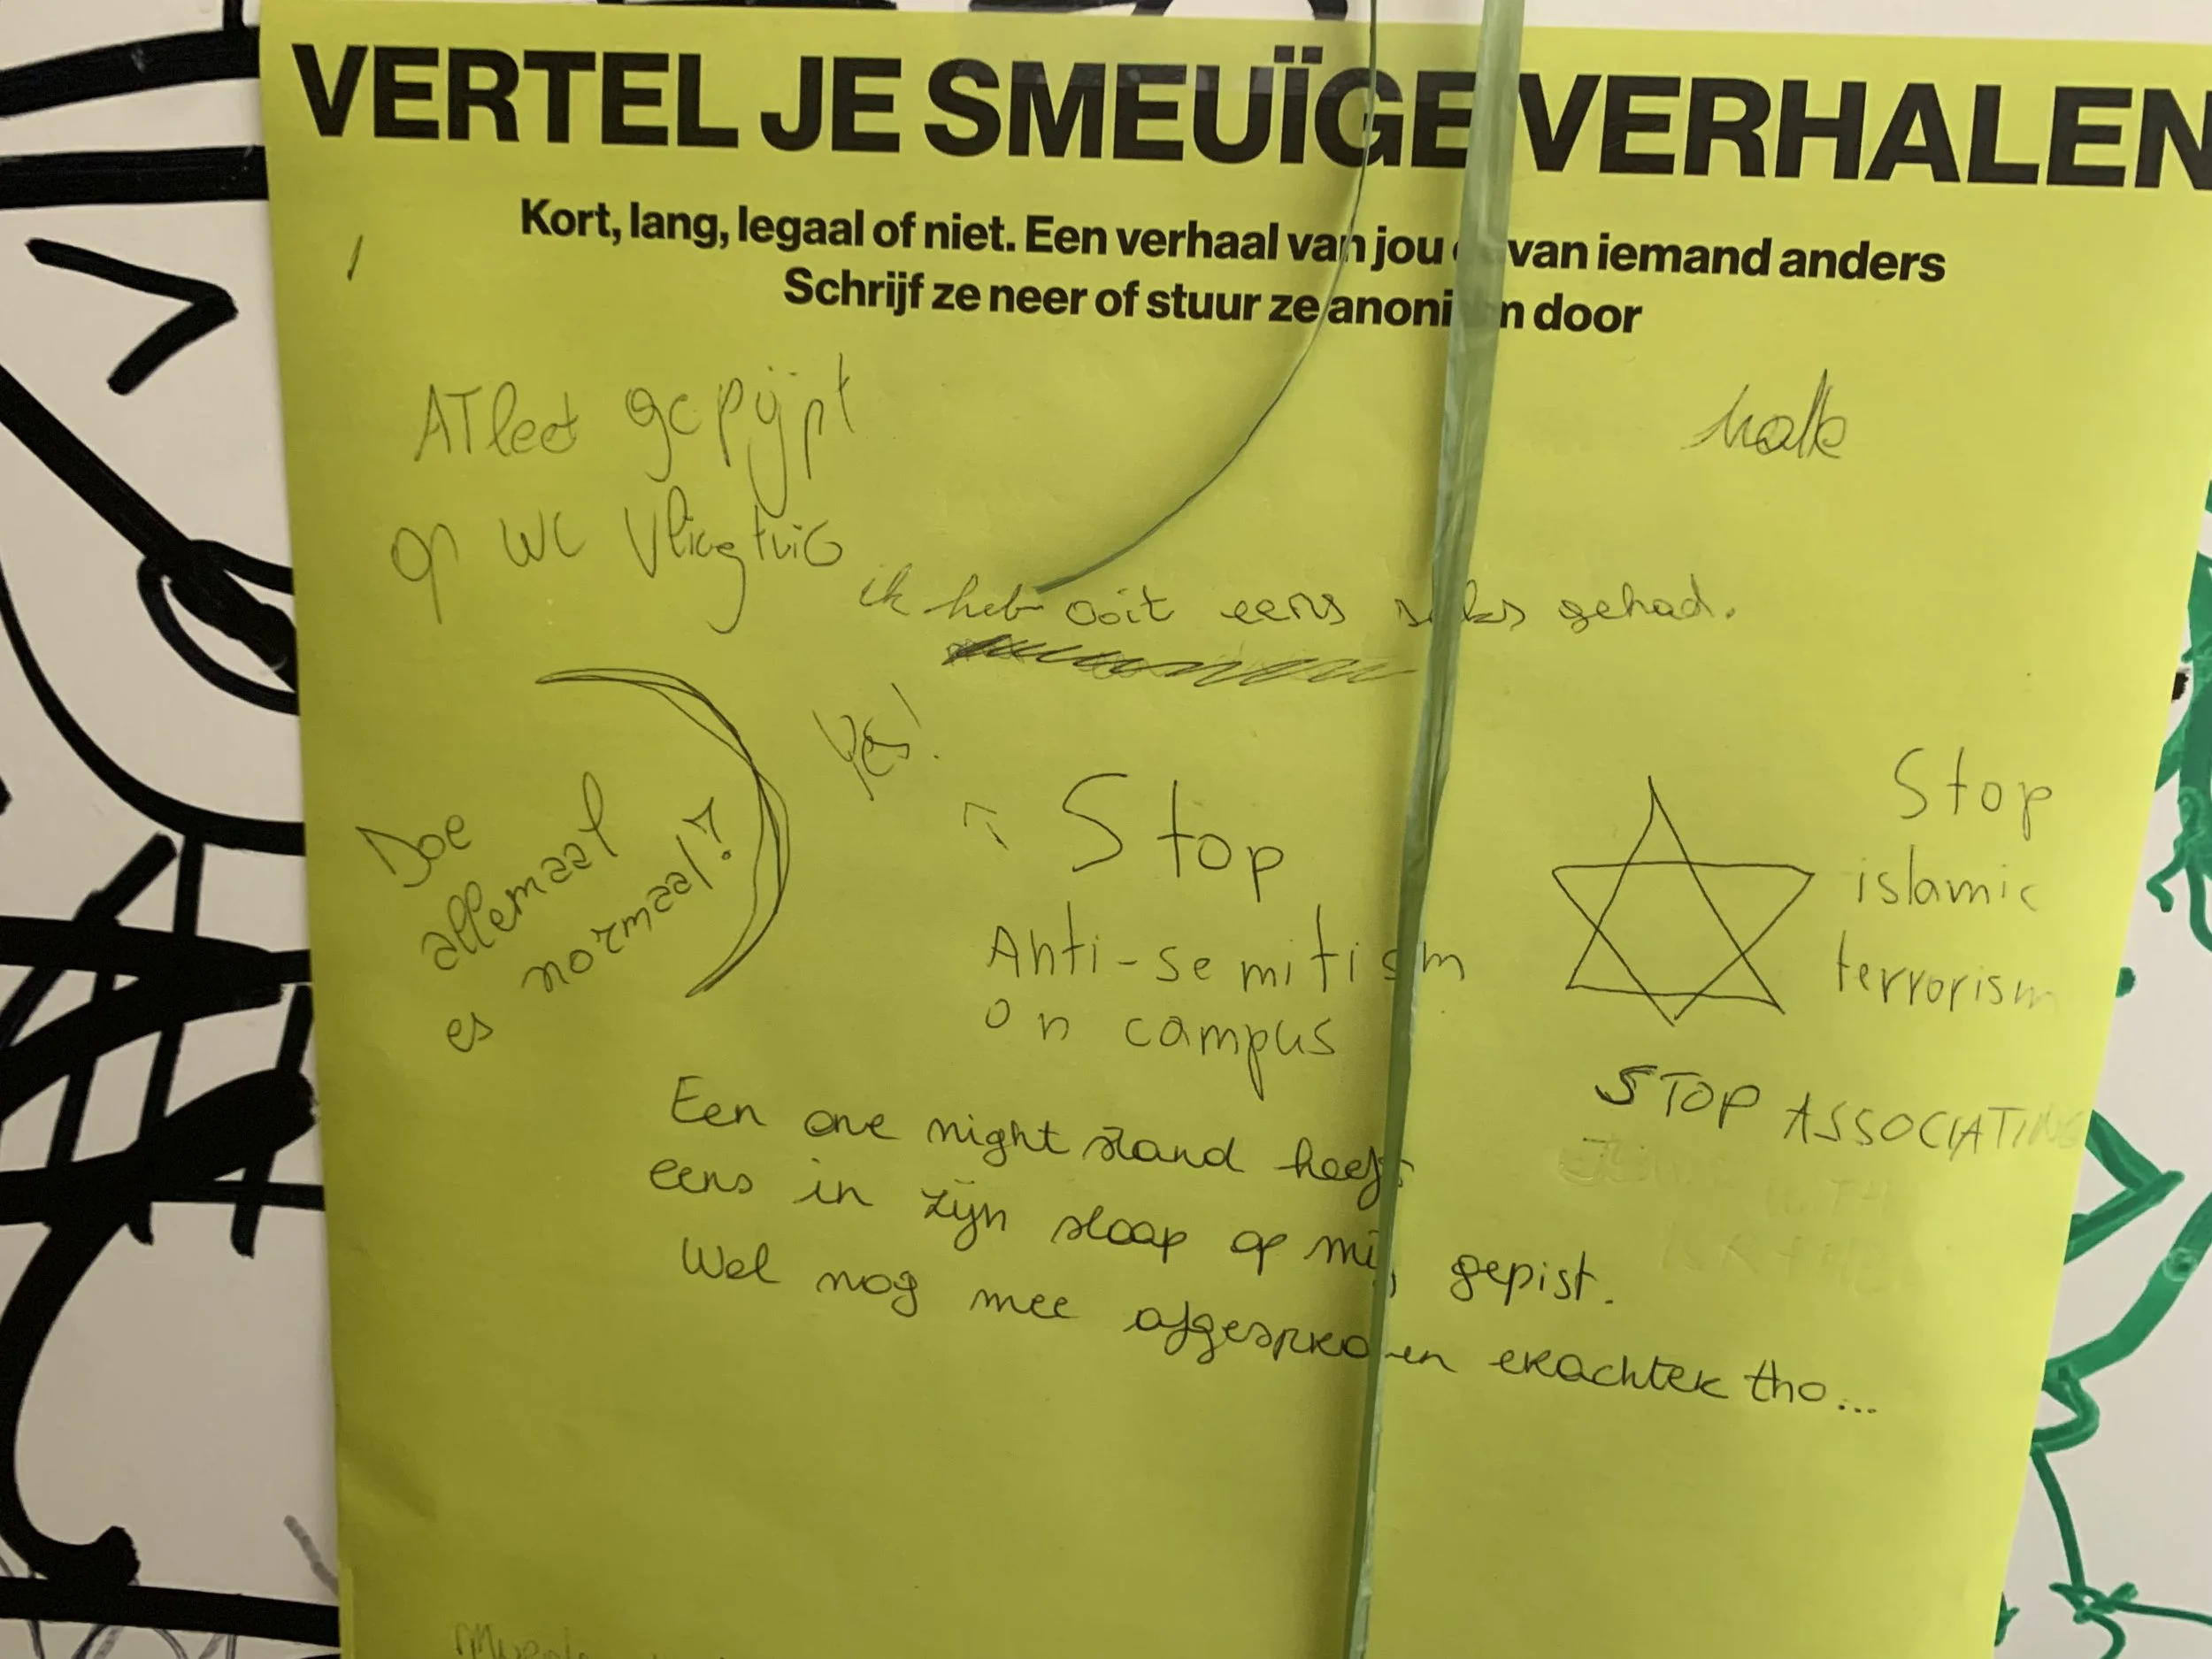 VERTEL JE SMEUÏGE VERHALEN
Kort, lang, legaal of niet. Een verhaal van jou van iemand anders
Schrijf ze neer of stuur ze anoniem door
ATleet gepijpt
op WC Vliegtuig
ik heb ooit eens seks gehad.
Yes!
Doe
allemaal
es normaal!?
Stop
Anti-semitism
on campus
Stop
islamic
terrorism
STOP ASSOCIATING
Een one night stand heeft
eens in zijn slaap op mij gepist.
Wel nog mee afgesproken erachter tho...